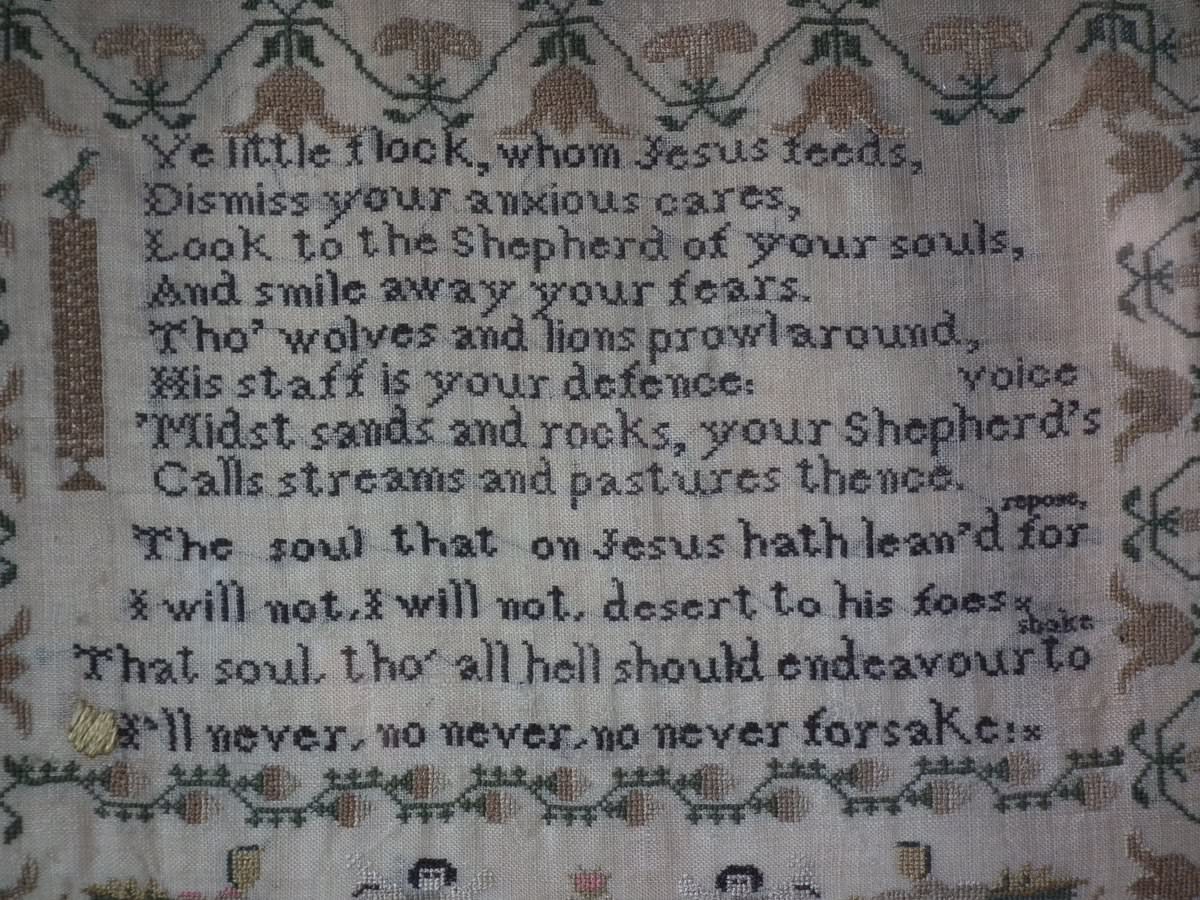 Ye little flock, whom Jesus feeds,
Dismiss your anxious cares,
Look to the Shepherd of your souls,
And smile away your fears.
Tho' wolves and lions prowl around,
His staff is your defence:
'Midst sands and rocks, your Shepherd's voice
Calls streams and pastures thence.
The soul that on Jesus hath lean'd for repose,
I will not, I will not, desert to his foes
That soul, tho' all hell should endeavour to shake
I'll never, no never, no never forsake: